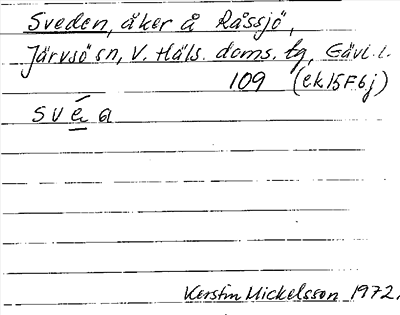 Sveden, åker å Råssjö,
Järvsö sn, V. Häls. doms. tg, Gävl. l.
109 (ek 15F6j)
své a
Kerstin Mickelsson 1972.